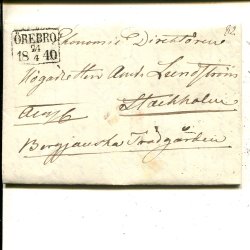 82.
ÖREBRO
24
18 4 40
Economie Directeuren
Högädle Herr And. Lundström
Stockholm
Bergianska Trädgården